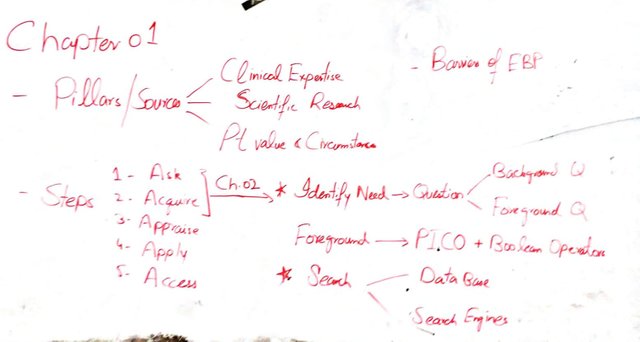 Chapter 01
- Barrier of EBP
- Pillars/Sources
Clinical Expertise
Scientific Research
Pt value & Circumstance
- Steps
1 - Ask
2 - Acquire
3 - Appraise
4 - Apply
5 - Access
Ch.02
* Identify Need → Question
Background Q
Foreground Q
Foreground → PICO + Boolean Operators
* Search
Data Base
Search Engines